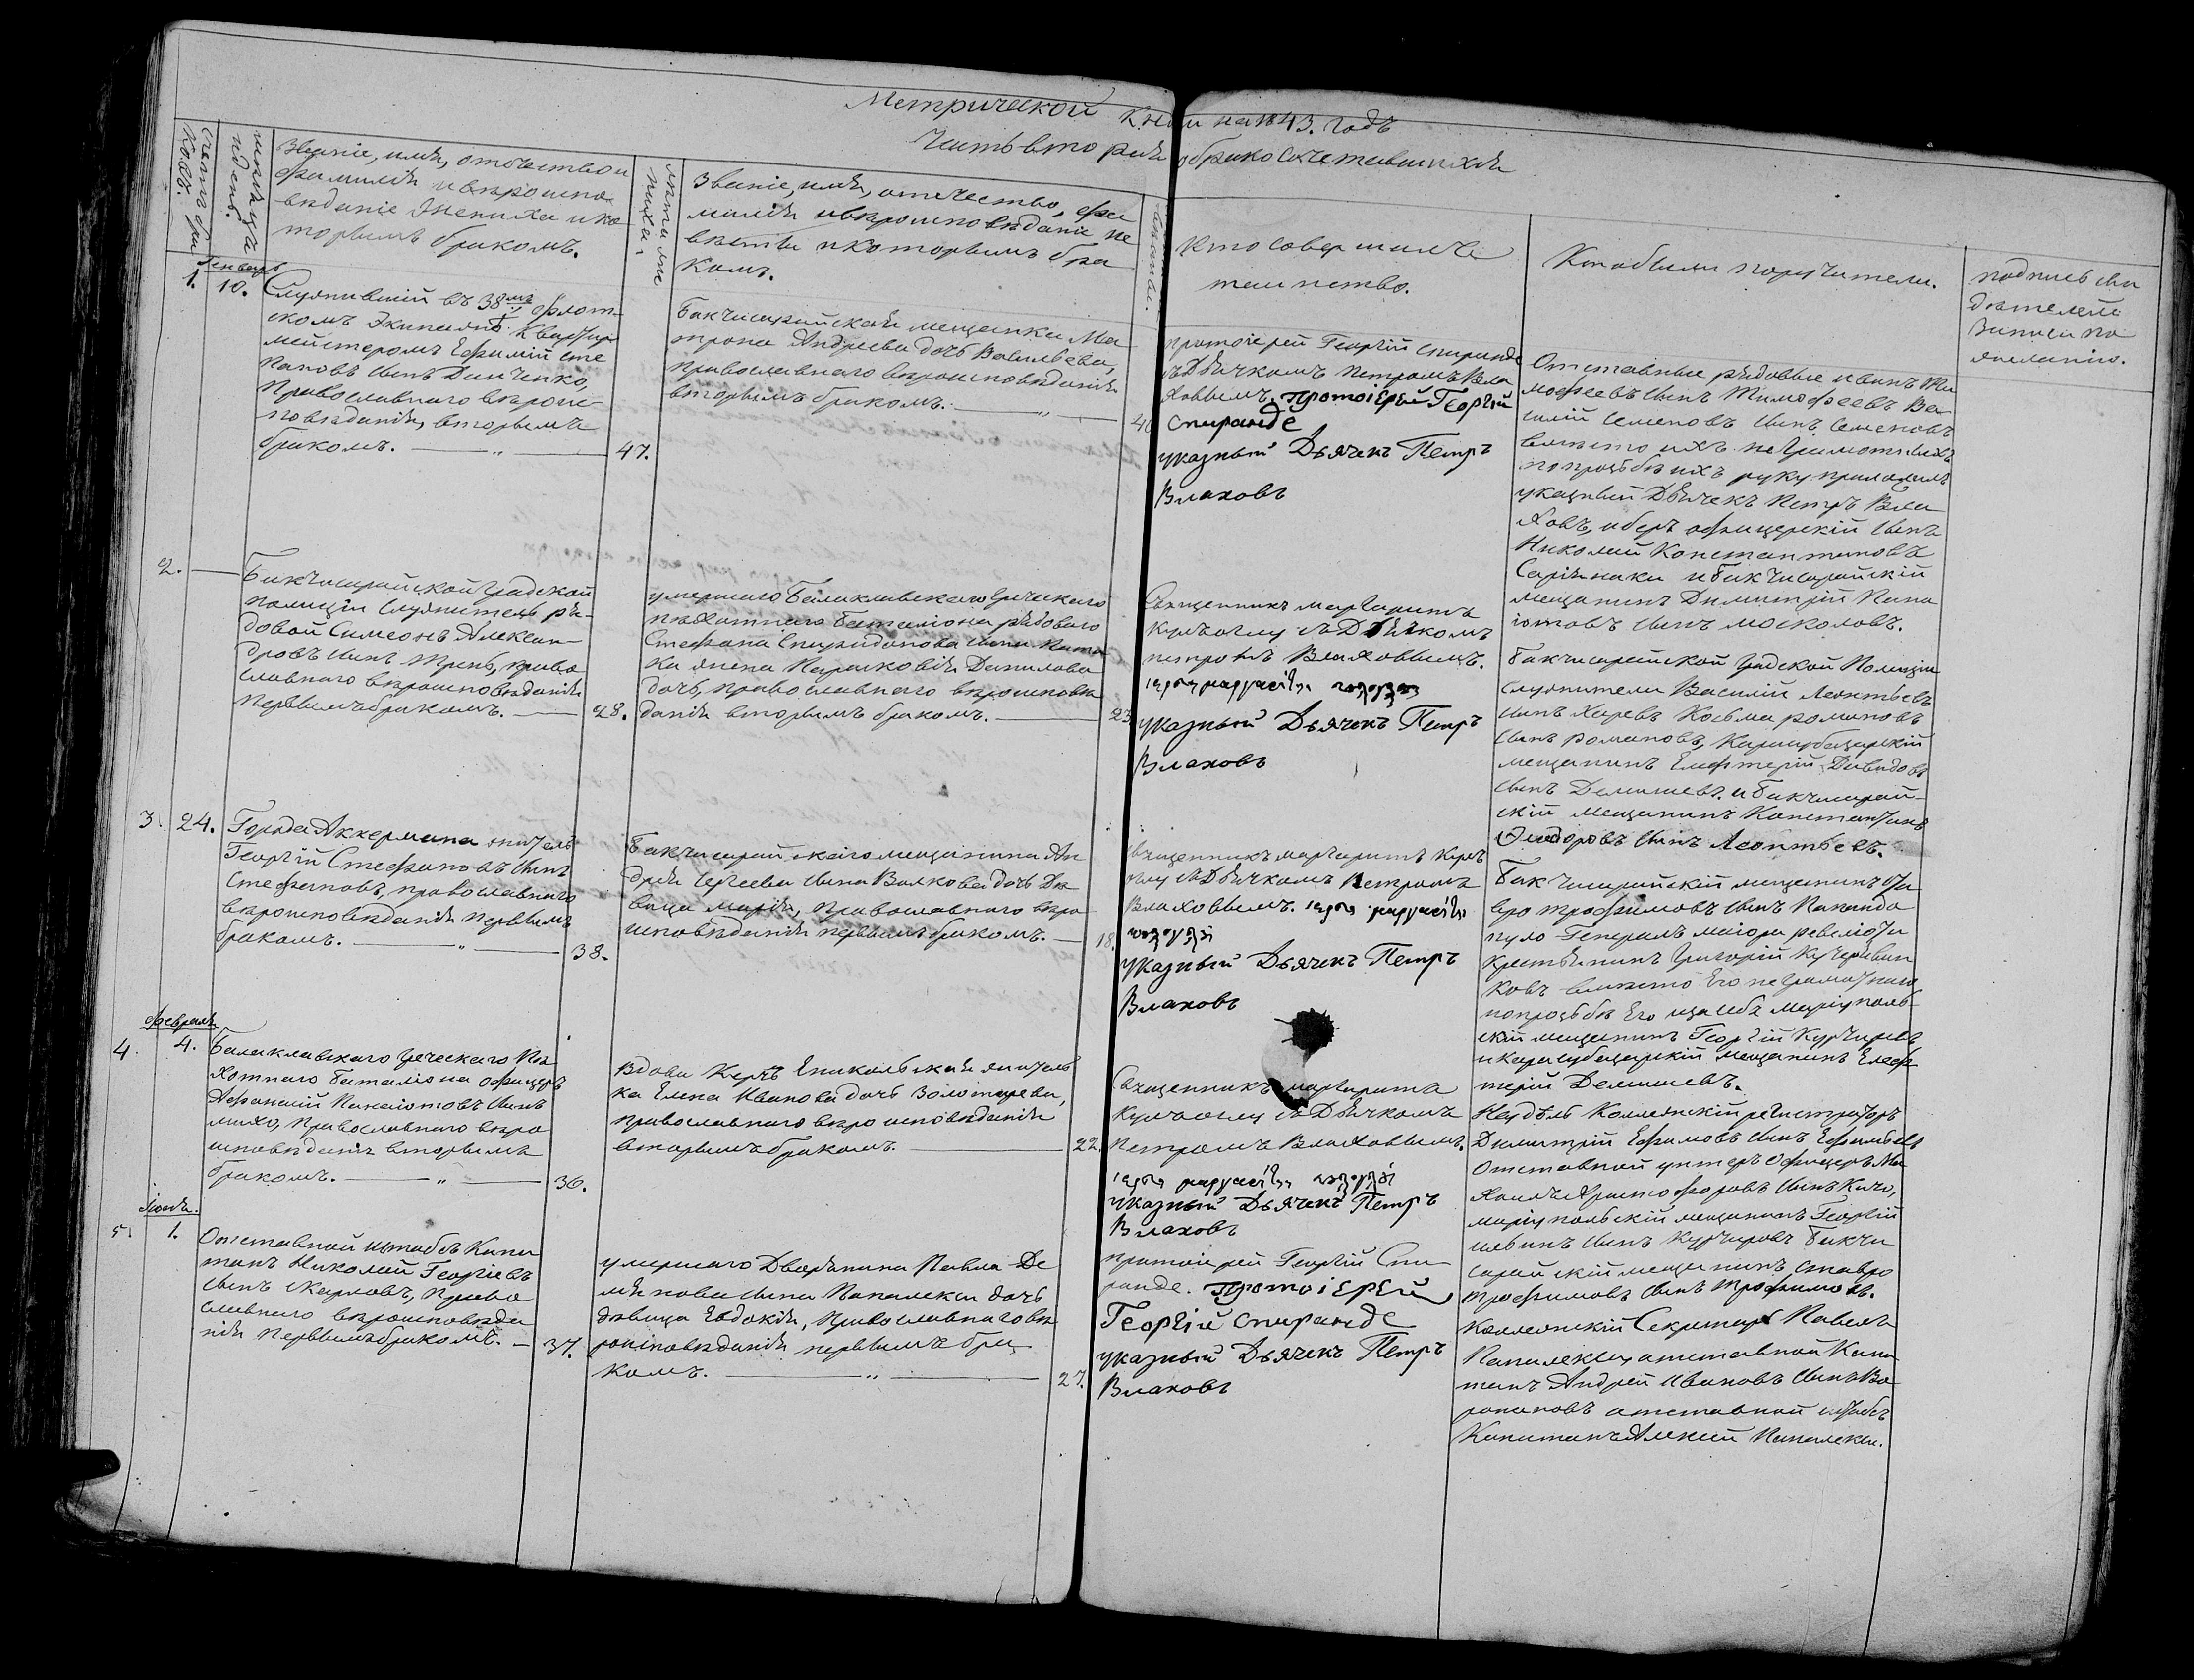 Метрической книги на 1843. годъ
Часть вторая о бракосочетавшихся
Счетъ бра
ковъ.
месяцъ
и день.
Званіе, имя, отечество и
фамилія и вероиспо-
веданіе жениха и ко
торымъ бракомъ.
лета же
ниха,
Званіе, имя, отечество, фа
милія и вероисповеданіе не
весты и которымъ бра
комъ.
Кто совершилъ
таинство.
Кто были поручители.
подпись сви
детелей
записи по
желанію.
Генварь
1. 10.
Служившій въ 38мъ флот-
скомъ Экипаже Квартир
мейстеромъ Ефимій Сте
пановъ сынъ Динченко,
Православнаго вероис-
поведанія, вторымъ
бракомъ. — „ — 47.
Бакчисарайская мещанка Ма
трона Андреева дочь Васильева,
православнаго вероисповеданія
вторымъ бракомъ. — „ — 40
протоіерей Георгій Спиранде
съ Дьячкомъ Петромъ Вла
ховымъ. протоіерей Георгій
Спиранде
указный Дьячекъ Петръ
Влаховъ
Отставные рядовые Иванъ Ти
мофеевъ сынъ Тимофеевъ Ва
силій Семеновъ сынъ Семеновъ
вместо ихъ неграмотныхъ
по прозьбе ихъ руку приложилъ
указный Дьячекъ Петръ Вла
ховъ, оберъ офицерскій сынъ
Николай Константиновъ
Сарінаки и Бакчисарайскій
мещанинъ Димитрій Пана
іотовъ сынъ Москоловъ.
2. —
Бакчисарайской градской
полиціи служитель ря-
довой Симеонъ Алексан-
дровъ сынъ Тринь, право
славнаго вероисповеданія
первымъ бракомъ. — 28.
умершаго Балаклавскаго греческаго
пехотнаго баталіона рядоваго
Стефана Спиридонова сына
жена Парасковія Данилова
дочь, православнаго вероиспове
данія вторымъ бракомъ. — 23
Священникъ Маргаритъ
Кулъоглу съ Дьячкомъ
Петромъ Влаховымъ.
указный Дьячекъ Петръ
Влаховъ
Бакчисарайской градской Полиціи
служители Василій Леонтьевъ
сынъ Харевъ Косьма Романовъ
сынъ Романовъ, Карасубазарскій
мещанинъ Елефтерій Давидовъ
сынъ Делишевъ. и Бакчисарай-
скій мещанинъ Константинъ
Феодоровъ сынъ Леонтьевъ.
3. 24.
Города Аккермана житель
Георгій Стефановъ сынъ
Стефановъ, православнаго
вероисповеданія первымъ
бракомъ. — „ — 38.
Бакчисарайскаго мещанина Ан
дрея Сергеева сына Волкова дочь Де
вица Марія, православнаго веро
исповеданія первымъ бракомъ. — 18.
Священникъ Маргаритъ Кулъ
оглу съ Дьячкомъ Петромъ
Влаховымъ.
указный Дьячекъ Петръ
Влаховъ
Бакчисарайскій мещанинъ Ста
вро Трофимовъ сынъ Папандо
пуло Генералъ маіора Ревеліоти
крестьянинъ Григорій Кучерявен
ковъ вместо Его неграмотнаго
по прозьбе Его и за себя Маріуполь-
скій мещанинъ Георгій Курчировъ
и Карасубазарскій мещанинъ Елеф
терій Делишевъ.
Февраль
4. 4.
Балаклавскаго Греческаго Пе
хотнаго баталіона офицеръ
Афанасій Панаіотовъ сынъ
Михо, Православнаго веро
исповеданія вторымъ
бракомъ. — „ — 36.
Вдова Керчь Еникольская житель
ка Елена Иванова дочь Золотарева,
православнаго вероисповеданія
вторымъ бракомъ. — 22.
Священникъ Маргаритъ
Кулъоглу съ Дьячкомъ
Петромъ Влаховымъ.
указный Дьячекъ Петръ
Влаховъ
Коллежскій регистраторъ
Димитрій Ефимовъ сынъ Ефимьевъ
Отставной унтеръ Офицеръ Ми
хаилъ Христофоровъ сынъ Кичо,
Маріупольскій мещанинъ Георгій
Савинъ сынъ Курчировъ Бакчи
сарайскій мещанинъ Ставро
Трофимовъ сынъ Трофимовъ.
5. 1.
Отставной штабсъ Капи
танъ Николай Георгіевъ
сынъ Скарловъ, Право
славнаго вероисповеда
нія первымъ бракомъ. — 37.
умершаго Дворянина Павла Де
сына Папалекси дочь
девица Евдокія, Православнаго ве
роисповеданія первымъ бра
комъ. — „ — 27.
протоіерей Георгій Спи
ранде. протоіерей
Георгій Спиранде
указный Дьячекъ Петръ
Влаховъ
Коллежскій Секретарь Павелъ
Папалекси, отставной Капи
танъ Андрей Ивановъ сынъ Ва
рониновъ отставной штабсъ
Капитанъ Алексій Папалекси.